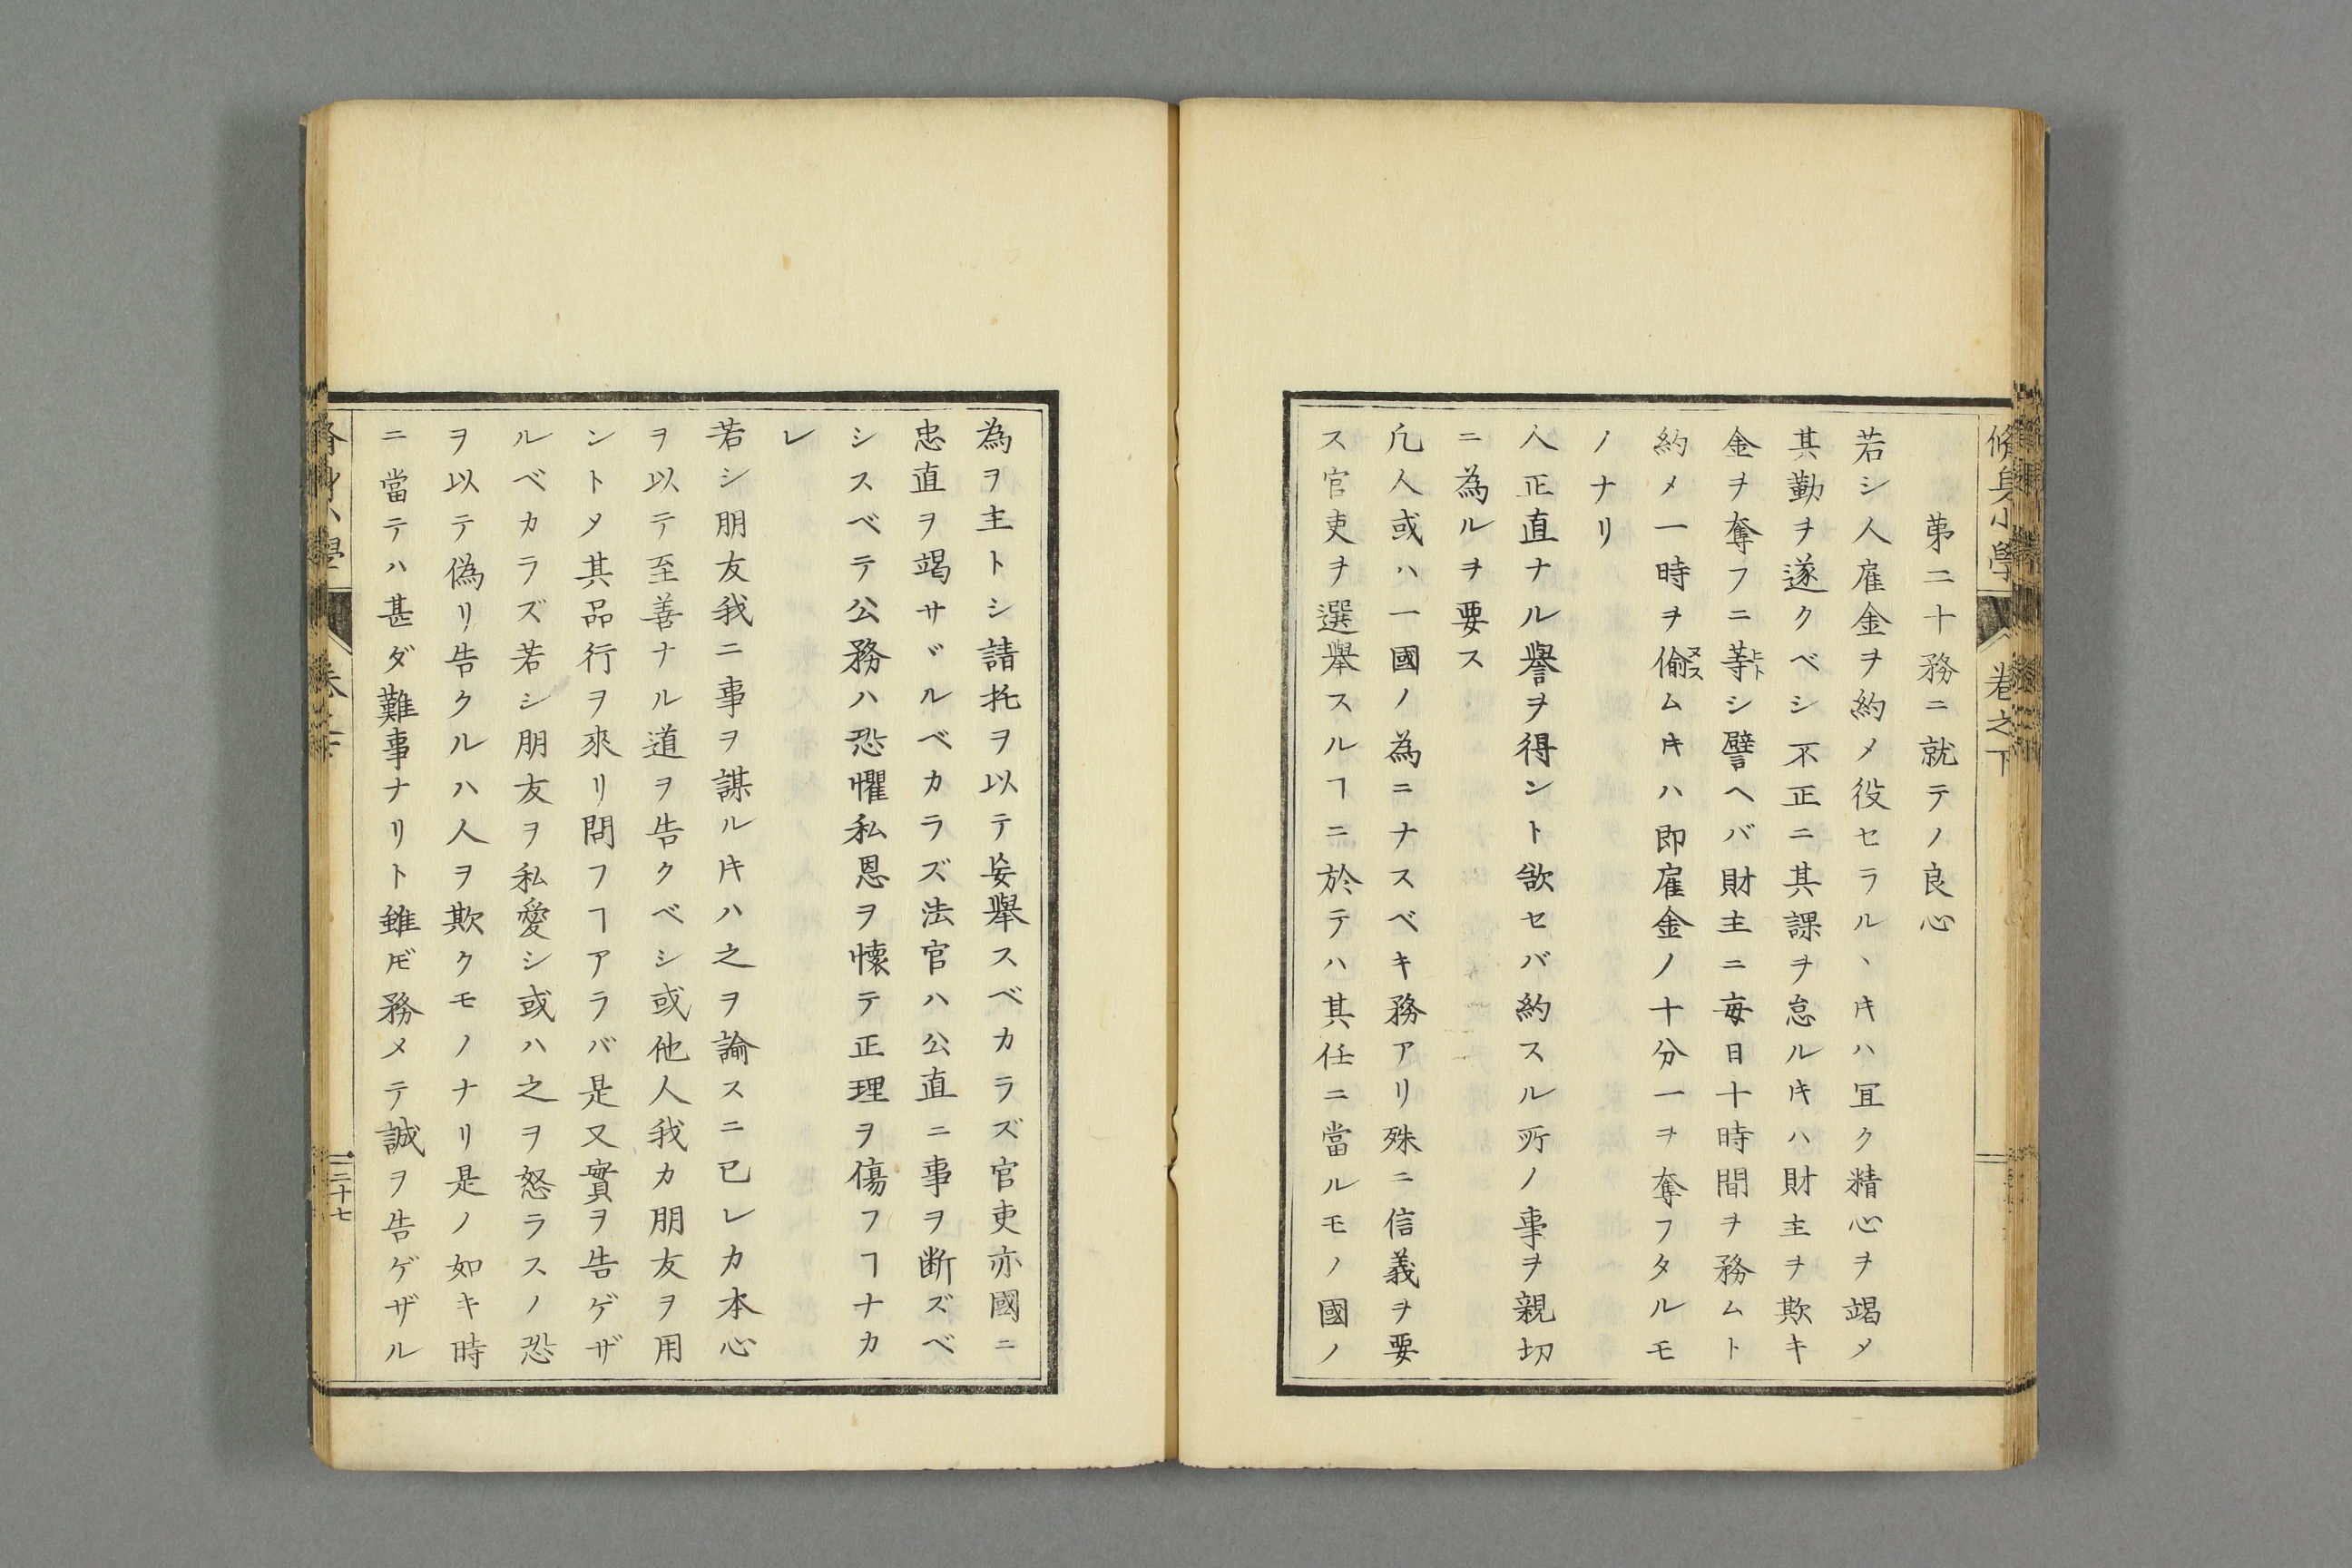 脩身小學 卷之下
第二十務ニ就テノ良心
若シ人雇金ヲ約メ役セラルヽ𪜈ハ冝ク精心ヲ竭メ
其勤ヲ遂クベシ不正ニ其課ヲ怠ル𪜈ハ財主ヲ欺キ
金ヲ奪フニ等シ譬ヘバ財主ニ毎日十時間ヲ務ムト
ヒト
約メ一時ヲ偷ムキハ即雇金ノ十分一ヲ奪フタルモ
ヌス
ノナリ
人正直ナル譽ヲ得ント欲セバ約スル所ノ事ヲ親切
ニ為ルヲ要ス
凡人或ハ一國ノ為ニナスベキ務アリ殊ニ信義ヲ要
ス官吏ヲ選舉スルヿニ於テハ其任ニ當ルモノ國ノ
為ヲ主トシ請托ヲ以テ妄舉スベカラズ官吏亦國ニ
忠直ヲ竭サヾルベカラズ法官ハ公直ニ事ヲ断ズベ
シスベテ公務ハ恐懼私恩ヲ懐テ正理ヲ傷フヿナカ
レ
若シ朋友我ニ事ヲ謀ルキハ之ヲ論スニ已レカ本心
ヲ以テ至善ナル道ヲ告クベシ或他人我カ朋友ヲ用
ントメ其品行ヲ來リ問フヿアラバ是又實ヲ告ゲザ
ルベカラズ若シ朋友ヲ私愛シ或ハ之ヲ怒ラスノ恐
ヲ以テ偽リ告クルハ人ヲ欺クモノナリ是ノ如キ時
ニ當テハ甚ダ難事ナリト雖𪜈務メテ誠ヲ告ゲザル
二十七